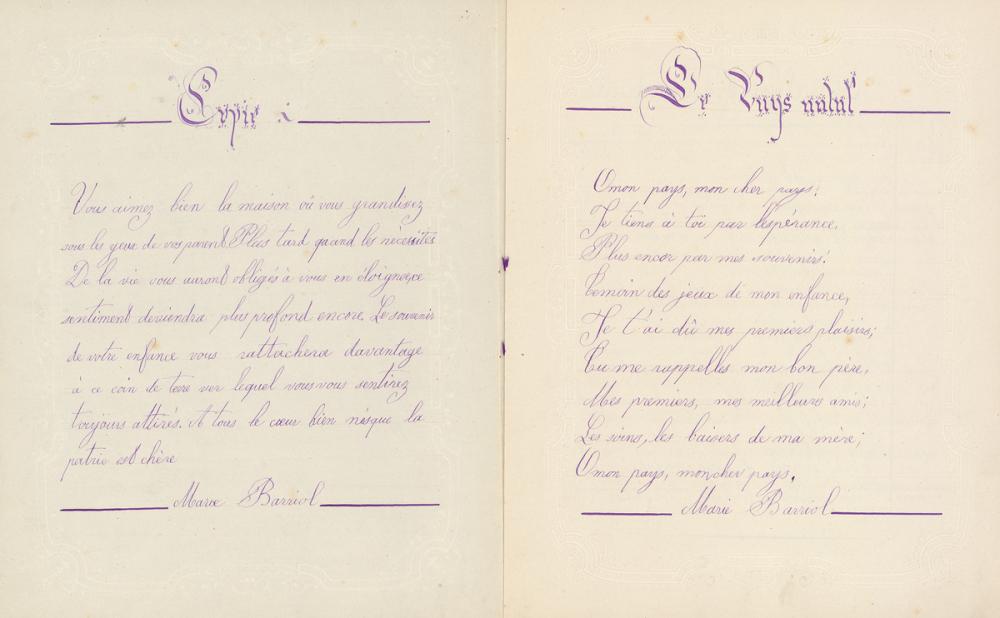 Copie
Vous aimez bien la maison où vous grandissez
sous les yeux de vos parents Plus tard quand les nécessités
De la vie vous auront obligés à vous en éloigner, ce
sentiment deviendra plus profond encore. Le souvenir
de votre enfance vous rattachera davantage
à ce coin de terre ver lequel vous vous sentirez
toujours attirés. A tous le cœur bien né que la
patrie est chère
Marie Barriol
Le Pays natal
O mon pays, mon cher pays;
Je tiens à toi par l'espérance,
Plus encor par mes souvenirs!
Temoin des jeux de mon enfance,
Je t'ai dû mes premiers plaisirs;
Tu me rappelles mon bon père,
Mes premiers, mes meilleurs amis;
Les soins, les baisers de ma mère;
O mon pays, mon cher pays.
Marie Barriol